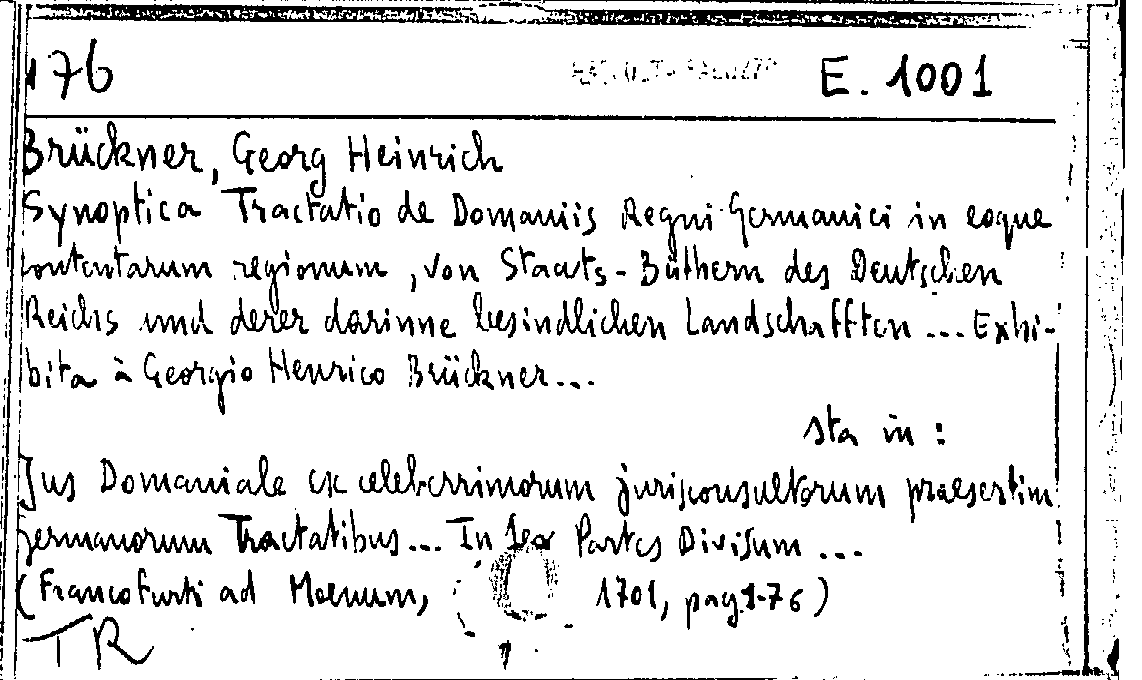 176 E. 1001
Brückner, Georg Heinrich
Synoptica Tractatio de Domaniis Regni Germanici in eoque
contentarum regionum, von Staats-Güthern des Deutschen
Reichs und derer darinne befindlichen Landschafften ... Exhi-
bita à Georgio Henrico Brückner...
sta in :
Jus Domaniale ex celeberrimorum jurisconsultorum praesertim
germanorum Tractatibus... In Sex Partes Divisum ...
(Francofurti ad Moenum, 1701, pag. 1-76)
TR